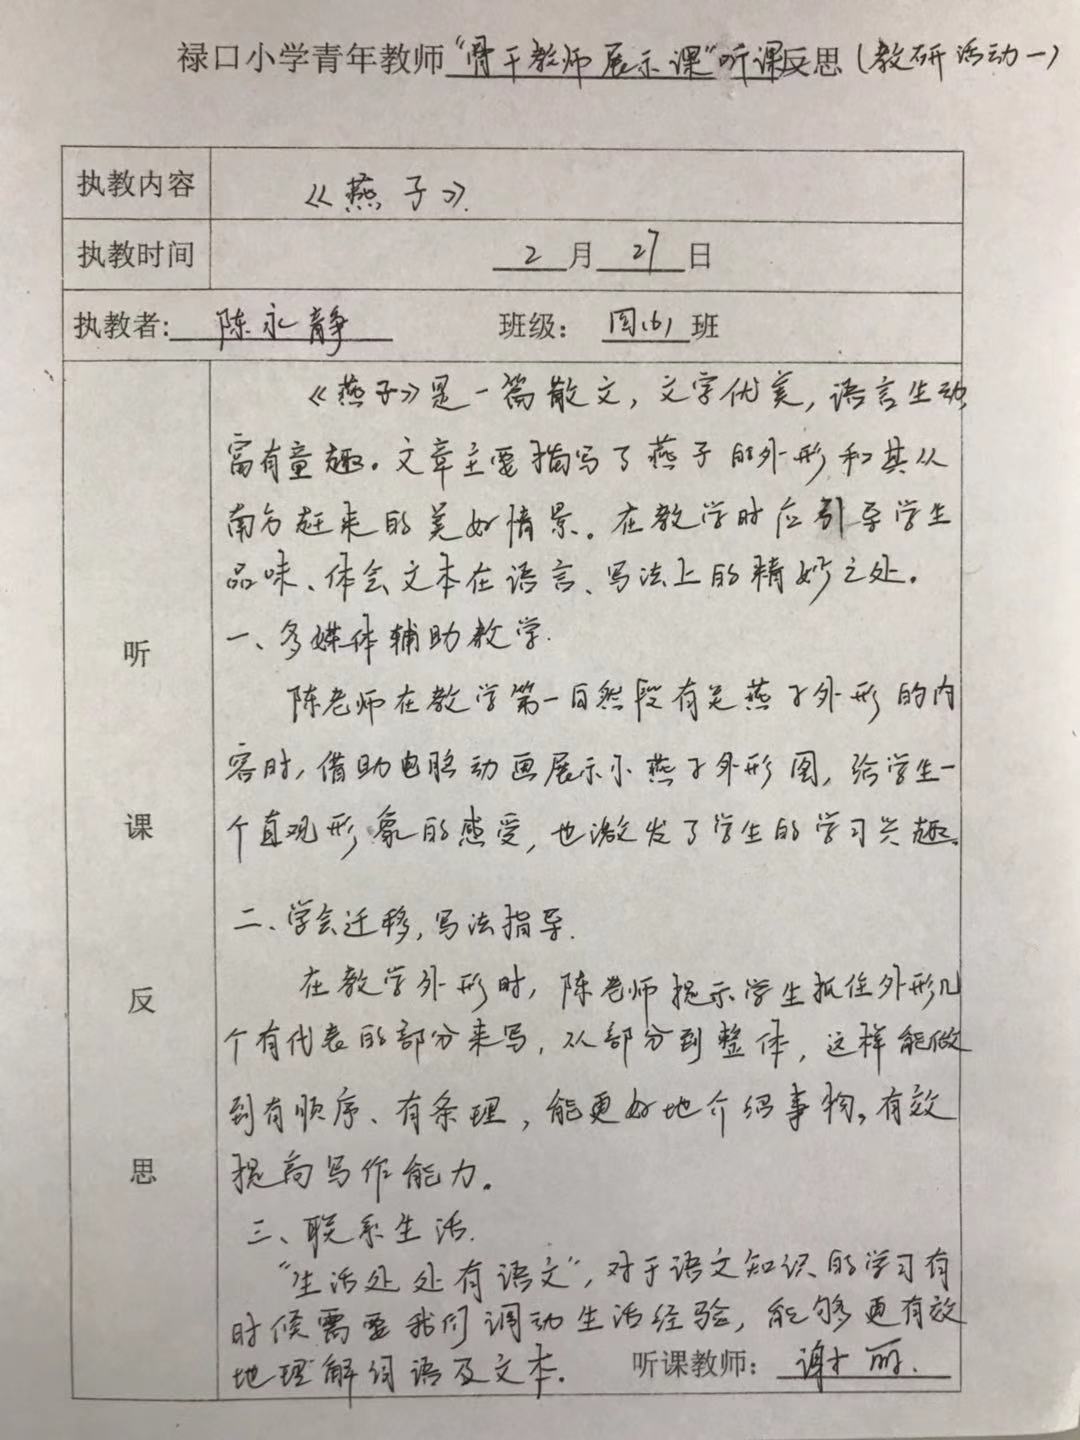 禄口小学青年教师“骨干教师展示课”听课反思（教研活动一）
执教内容 《燕子》.
执教时间 2月27日
执教者: 陈永静 班级： 四(6)班
听课反思
《燕子》是一篇散文，文字优美，语言生动，
富有童趣。文章主要描写了燕子的外形和其从
南方赶来的美好情景。在教学时应引导学生
品味、体会文本在语言、写法上的精妙之处。
一、多媒体辅助教学.
陈老师在教学第一自然段有关燕子外形的内
容时，借助电脑动画展示小燕子外形图，给学生一
个直观形象的感受，也激发了学生的学习兴趣。
二、学会迁移，写法指导.
在教学外形时，陈老师提示学生抓住外形几
个有代表的部分来写，从部分到整体，这样能做
到有顺序、有条理，能更好地介绍事物。有效
提高写作能力。
三、联系生活.
“生活处处有语文”，对于语文知识的学习有
时候需要我们调动生活经验，能够更有效
地理解词语及文本。
听课教师： 谢丽.